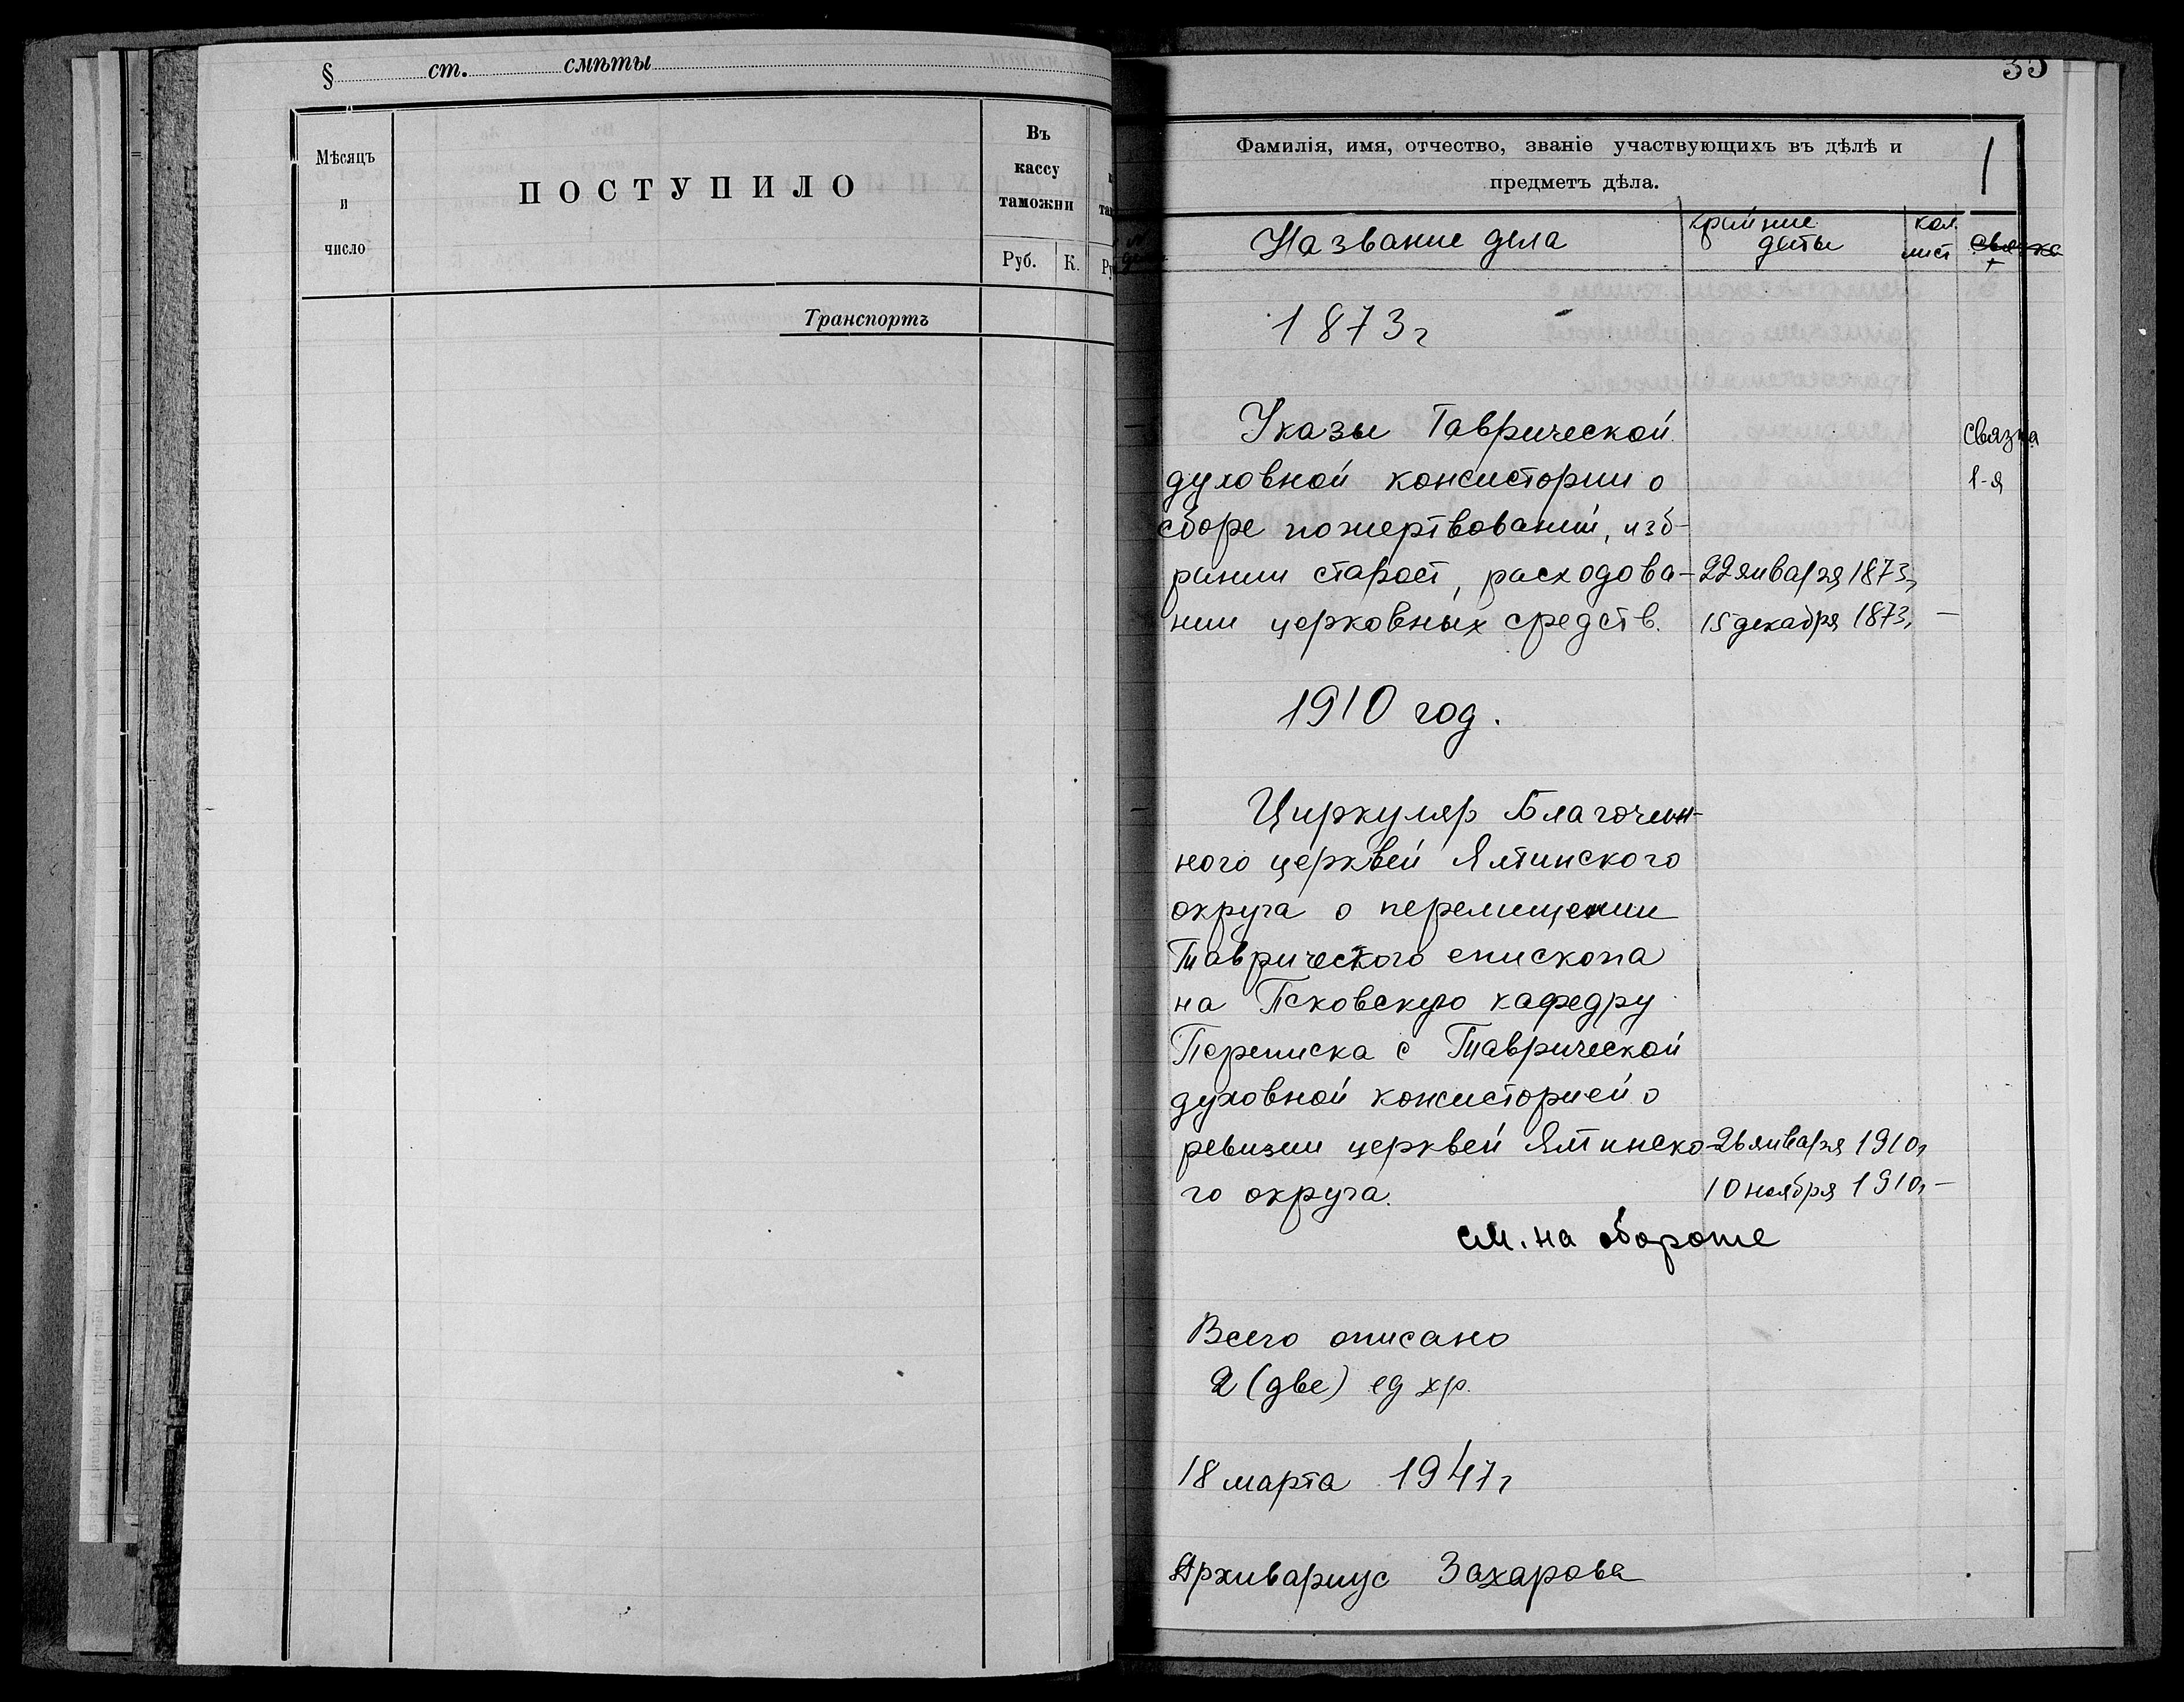 § ст. смѣты
Мѣсяцъ
и
число
ПОСТУПИЛО
Въ
кассу
таможни
Руб. К.
Транспортъ
35
Фамилія, имя, отчество, званіе участвующихъ въ дѣлѣ и
предметъ дѣла.
Название дела
крайние
даты
кол.
лист
связка
1873г
Указы Таврической
духовной консистории о
сборе пожертвований, изб-
рании старост, расходова-
нии церковных средств.
22 января 1873г
15 декабря 1873г —
связка
1-я
1910 год.
Циркуляр Благочин-
ного церквей Ялтинского
округа о перемещении
Таврического епископа
на Псковскую кафедру
Переписка с Таврической
духовной консисторией о
ревизии церквей Ялтинско-
го округа.
26 января 1910г
10 ноября 1910г —
см. на обороте
Всего описано
2 (две) ед хр.
18 марта 1947г
Архивариус Захарова